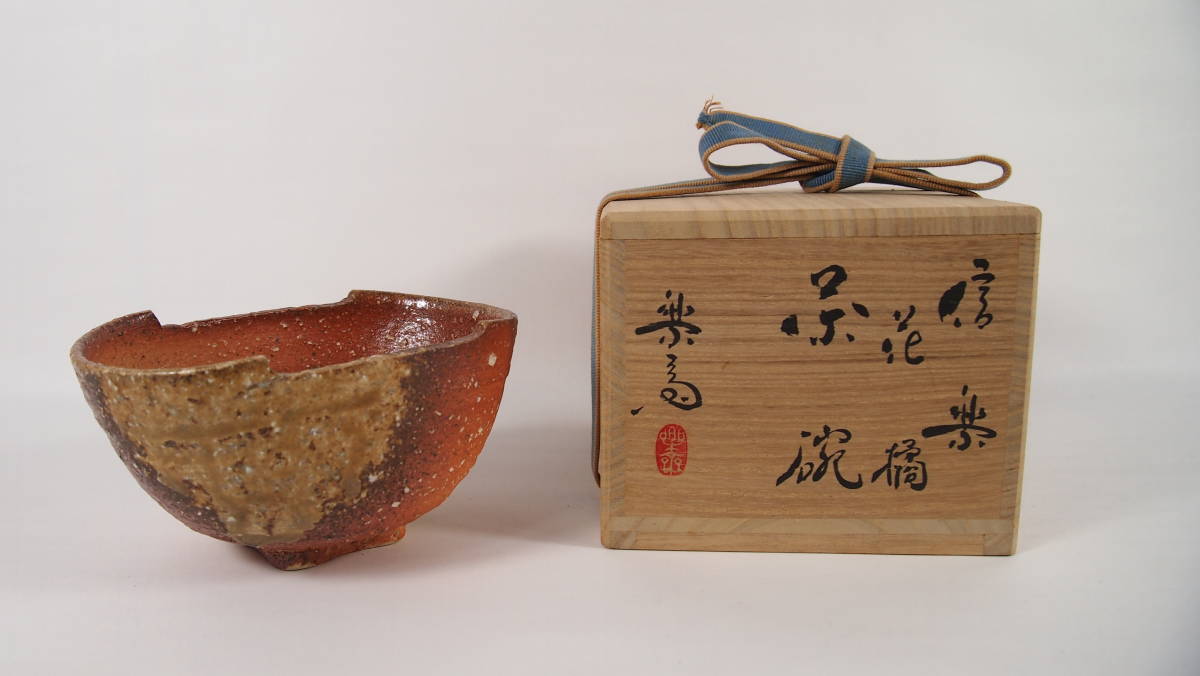 信楽
花橘
茶碗
楽斎